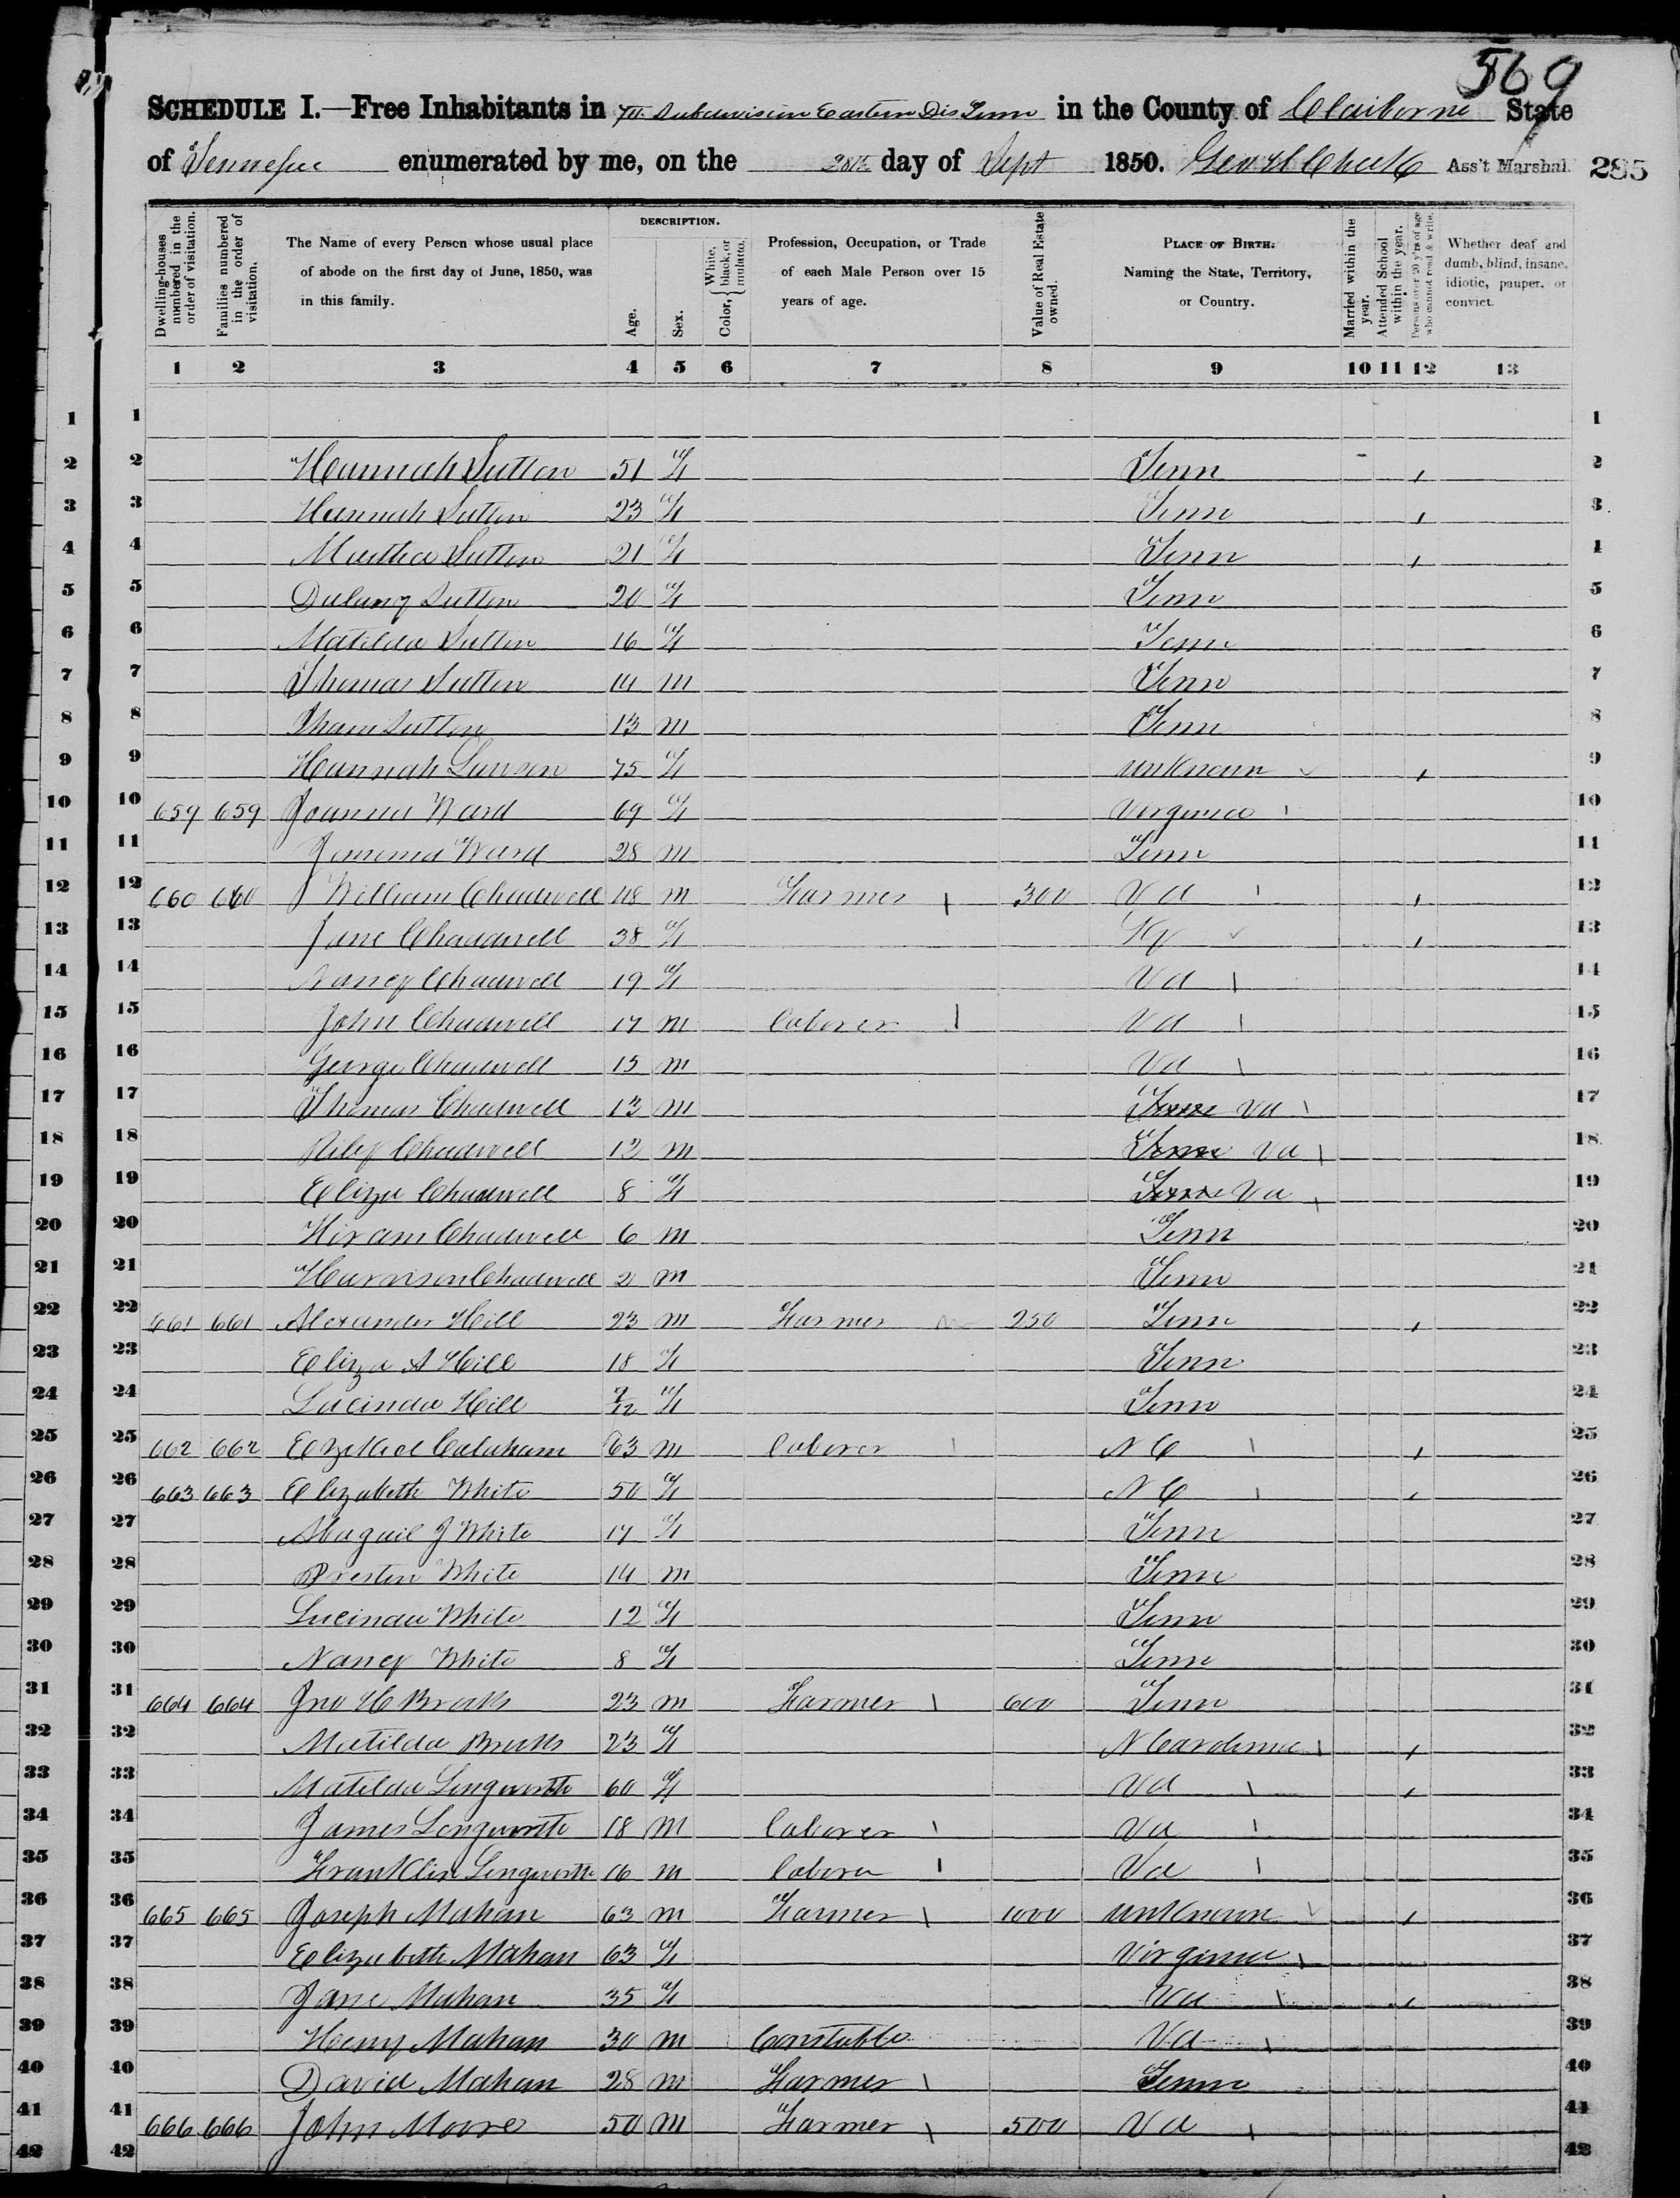 569
SCHEDULE I.—Free Inhabitants in 7th Subdivision Eastern Dis Tenn in the County of Claiborne State
of Tennessee enumerated by me, on the 28th day of Sept 1850. Geo Ass't Marshal. 285
Dwelling-houses numbered in the order of visitation.
Families numbered in the order of visitation.
The Name of every Person whose usual place of abode on the first day of June, 1850, was in this family.
DESCRIPTION.
Age.
Sex.
Color, { White, black, or mulatto.
Profession, Occupation, or Trade of each Male Person over 15 years of age.
Value of Real Estate owned.
PLACE OF BIRTH. Naming the State, Territory, or Country.
Married within the year.
Attended School within the year.
Persons over 20 y'rs of age who cannot read & write.
Whether deaf and dumb, blind, insane, idiotic, pauper, or convict.
1 2 3 4 5 6 7 8 9 10 11 12 13
1 1 1
2 2 Hannah Sutton 51 F Tenn / 2
3 3 Hannah Sutton 23 F Tenn / 3
4 4 Martha Sutton 21 F Tenn / 4
5 5 Sutton 20 F Tenn 5
6 6 Matilda Sutton 16 F Tenn 6
7 7 Thomas Sutton 14 m Tenn 7
8 8 Sutton 13 m Tenn 8
9 9 Hannah Lawson 75 F unknown / 9
10 10 659 659 Joanna Ward 69 F Virginia 10
11 11 Jemima Ward 28 m Tenn 11
12 12 660 660 William Chadwell 48 m Farmer 300 Va / 12
13 13 Jane Chadwell 38 F Ky / 13
14 14 Nancy Chadwell 19 F Va 14
15 15 John Chadwell 17 m laborer Va 15
16 16 George Chadwell 15 m Va 16
17 17 Thomas Chadwell 13 m Tenn Va 17
18 18 Riley Chadwell 12 m Tenn Va 18
19 19 Eliza Chadwell 8 F Tenn Va 19
20 20 Hiram Chadwell 6 m Tenn 20
21 21 Harrison Chadwell 2 m Tenn 21
22 22 661 661 Alexander Hill 23 m Farmer 250 Tenn / 22
23 23 Eliza A Hill 18 F Tenn 23
24 24 Lucinda Hill F Tenn 24
25 25 662 662 Ezekiel Calaham 63 m laborer N C / 25
26 26 663 663 Elizabeth White 50 F N C / 26
27 27 Abagail J White 17 F Tenn 27
28 28 Preston White 14 m Tenn 28
29 29 Lucinda White 12 F Tenn 29
30 30 Nancy White 8 F Tenn 30
31 31 664 664 Jno H Brooks 23 m Farmer 600 Tenn 31
32 32 Matilda Brooks 23 F N Carolina / 32
33 33 Matilda Longworth 60 F Va / 33
34 34 James Longworth 18 m laborer Va 34
35 35 Franklin Longworth 16 m labora Va 35
36 36 665 665 Joseph Mahan 63 m Farmer 1000 unknown / 36
37 37 Elizabeth Mahan 63 F Virginia 37
38 38 Jane Mahan 35 F Va / 38
39 39 Henry Mahan 30 m Constable Va 39
40 40 David Mahan 28 m Farmer Tenn 40
41 41 666 666 John Moore 50 m Farmer 500 Va 41
42 42 42